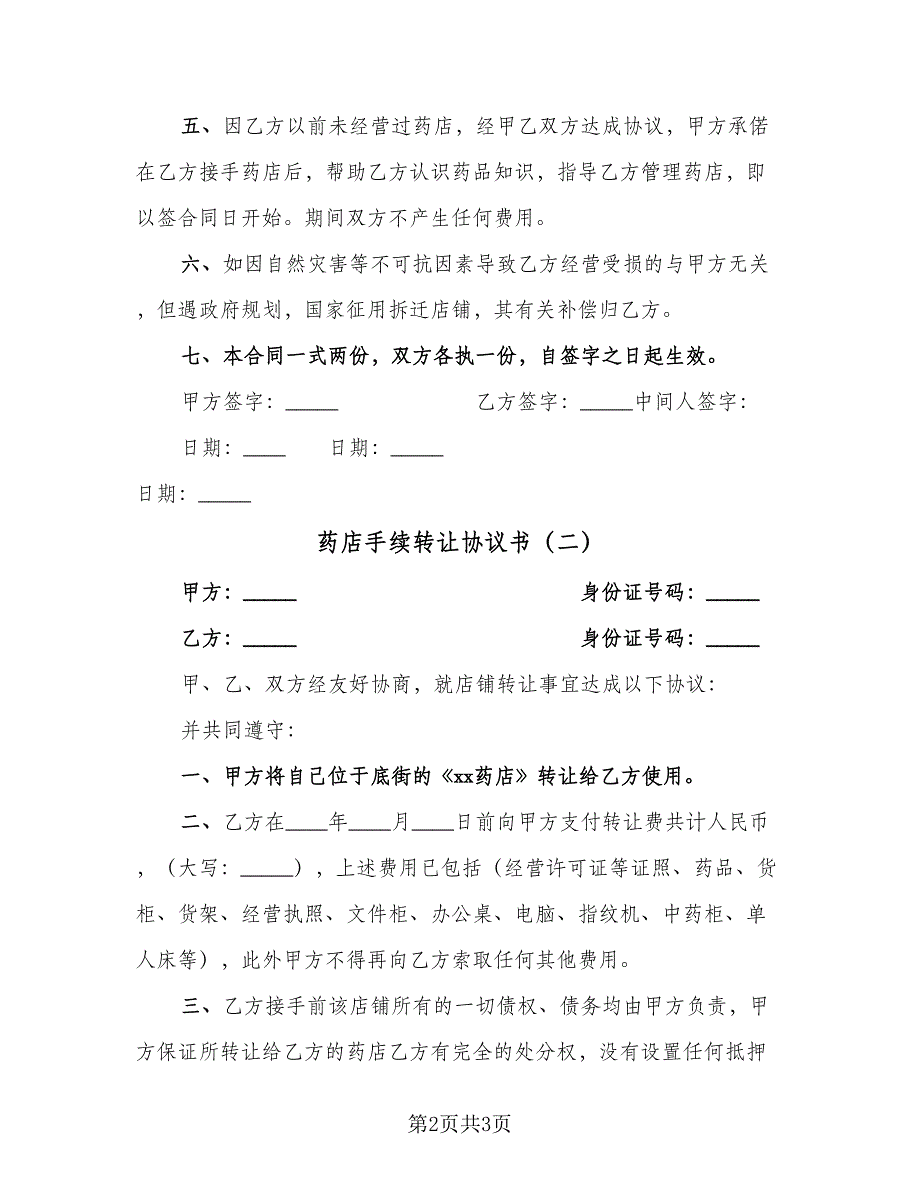 五、因乙方以前未经营过药店，经甲乙双方达成协议，甲方承偌
在乙方接手药店后，帮助乙方认识药品知识，指导乙方管理药店，即
以签合同日开始。期间双方不产生任何费用。
六、如因自然灾害等不可抗因素导致乙方经营受损的与甲方无关
，但遇政府规划，国家征用拆迁店铺，其有关补偿归乙方。
七、本合同一式两份，双方各执一份，自签字之日起生效。
甲方签字：_____ 乙方签字：_____中间人签字：
日期：____ 日期：_____
日期：_____
药店手续转让协议书（二）
甲方：_____ 身份证号码：_____
乙方：_____ 身份证号码：_____
甲、乙、双方经友好协商，就店铺转让事宜达成以下协议：
并共同遵守：
一、甲方将自己位于底街的《xx药店》转让给乙方使用。
二、乙方在____年____月____日前向甲方支付转让费共计人民币
，（大写：_____），上述费用已包括（经营许可证等证照、药品、货
柜、货架、经营执照、文件柜、办公桌、电脑、指纹机、中药柜、单
人床等），此外甲方不得再向乙方索取任何其他费用。
三、乙方接手前该店铺所有的一切债权、债务均由甲方负责，甲
方保证所转让给乙方的药店乙方有完全的处分权，没有设置任何抵押
第2页共3页